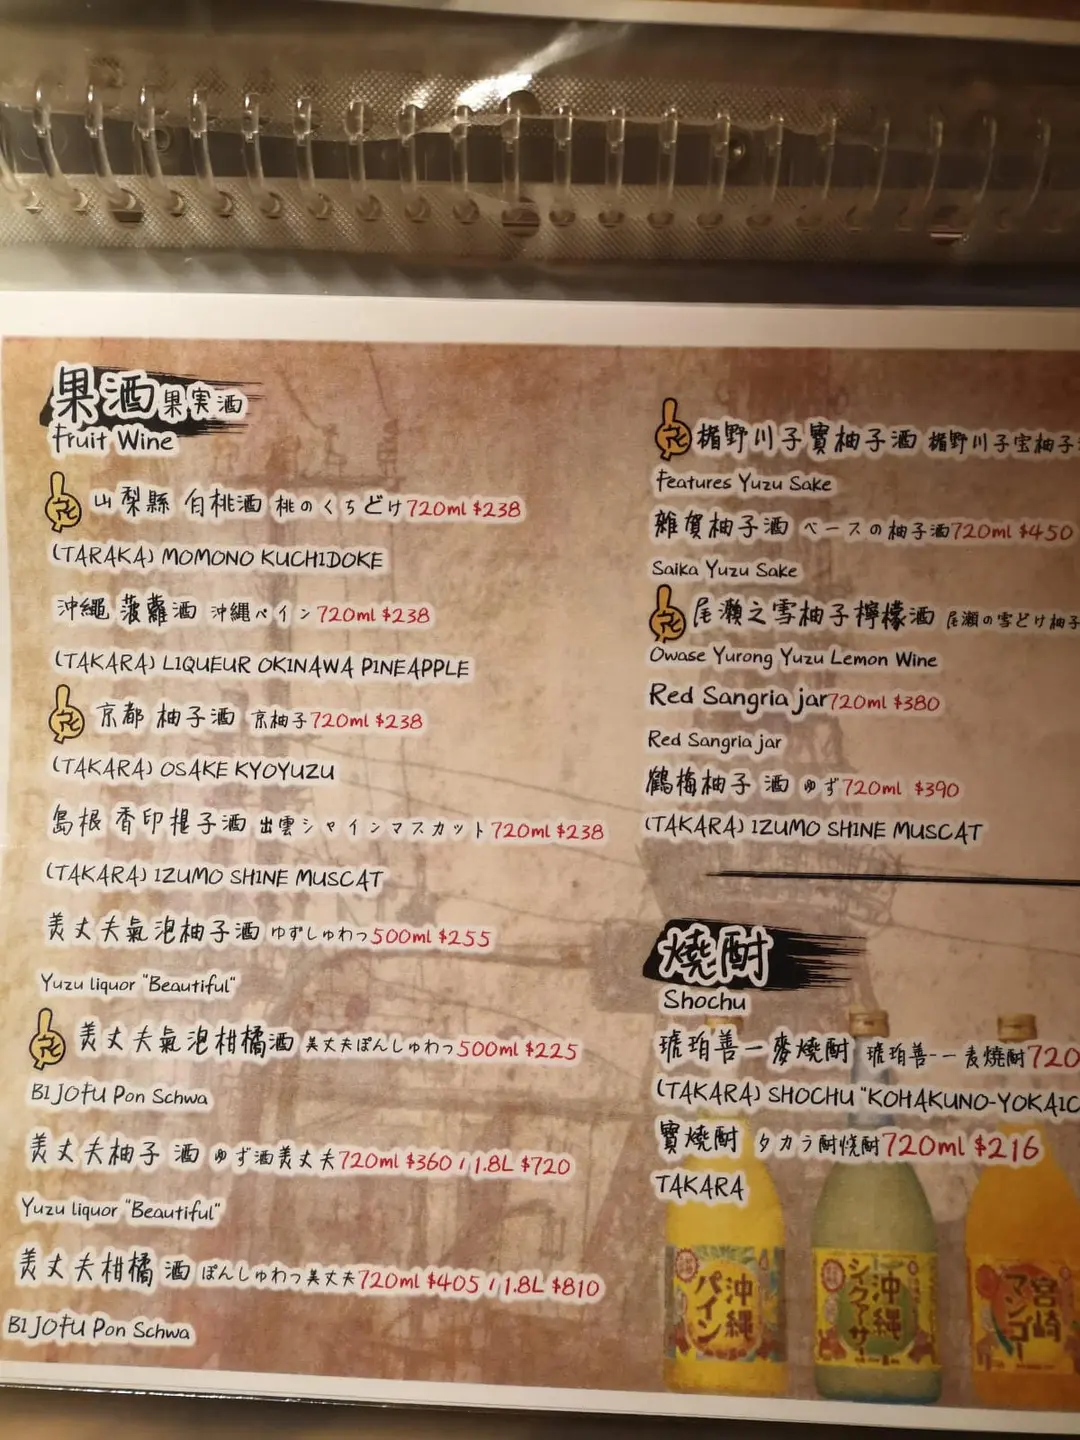 果酒 果実酒
Fruit Wine
山梨縣 白桃酒 桃のくちどけ720ml $238
(TARAKA) MOMONO KUCHIDOKE
沖繩 菠蘿酒 沖縄パイン720ml $238
(TAKARA) LIQUEUR OKINAWA PINEAPPLE
京都 柚子酒 京柚子720ml $238
(TAKARA) OSAKE KYOYUZU
島根 香印提子酒 出雲シャインマスカット720ml $238
(TAKARA) IZUMO SHINE MUSCAT
美丈夫氣泡柚子酒 ゆずしゅわっ500ml $255
Yuzu liquor "Beautiful"
美丈夫氣泡柑橘酒 美丈夫ぽんしゅわっ500ml $225
BIJOFU Pon Schwa
美丈夫柚子 酒 ゆず酒美丈夫720ml $360 / 1.8L $720
Yuzu liquor "Beautiful"
美丈夫柑橘 酒 ぽんしゅわっ美丈夫720ml $405 / 1.8L $810
BIJOFU Pon Schwa
楯野川子寶柚子酒 楯野川子宝柚子
Features Yuzu Sake
雜賀柚子酒 ベースの柚子酒720ml $450
Saika Yuzu Sake
尾瀨之雪柚子檸檬酒 尾瀬の雪どけ柚子
Owase Yurong Yuzu Lemon Wine
Red Sangria jar720ml $380
Red Sangria jar
鶴梅柚子 酒 ゆず720ml $390
(TAKARA) IZUMO SHINE MUSCAT
燒酎
Shochu
琥珀善一麥燒酎 琥珀善-一麦焼酎720
(TAKARA) SHOCHU "KOHAKUNO-YOKAIC
寶燒酎 タカラ酎焼酎720ml $216
TAKARA
沖縄パイン
沖縄シィクァーサー
宮崎マンゴー